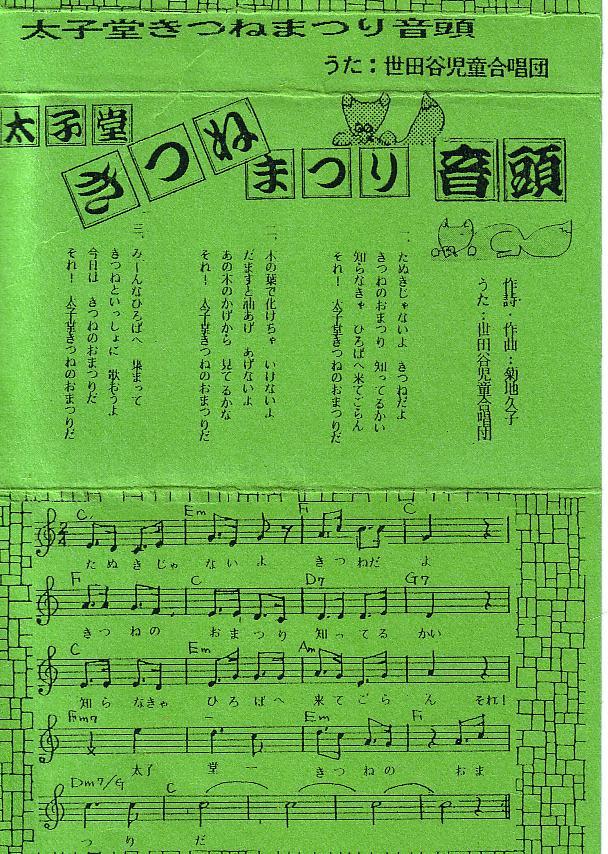 太子堂きつねまつり音頭
うた：世田谷児童合唱団
太子堂
きつね
まつり
音頭
作詩・作曲：菊地久子
うた：世田谷児童合唱団
一、たぬきじゃないよ　きつねだよ
きつねのおまつり　知ってるかい
知らなきゃ　ひろばへ来てごらん
それ！　太子堂きつねのおまつりだ
二、木の葉で化けちゃ　いけないよ
だますと油あげ　あげないよ
あの木のかげから　見てるかな
それ！　太子堂きつねのおまつりだ
三、みーんなひろばへ　集まって
きつねといっしょに　歌おうよ
今日は　きつねのおまつりだ
それ！　太子堂きつねのおまつりだ
C Em F C
たぬきじゃ ないよ きつねだ よ
F C D7 G7
きつねの おまつり 知ってる かい
C Em Am
知らなきゃ ひろばへ 来てごら ん それ！
Em F
太子 堂ー きつねの おま
Dm7/G C
つり だ